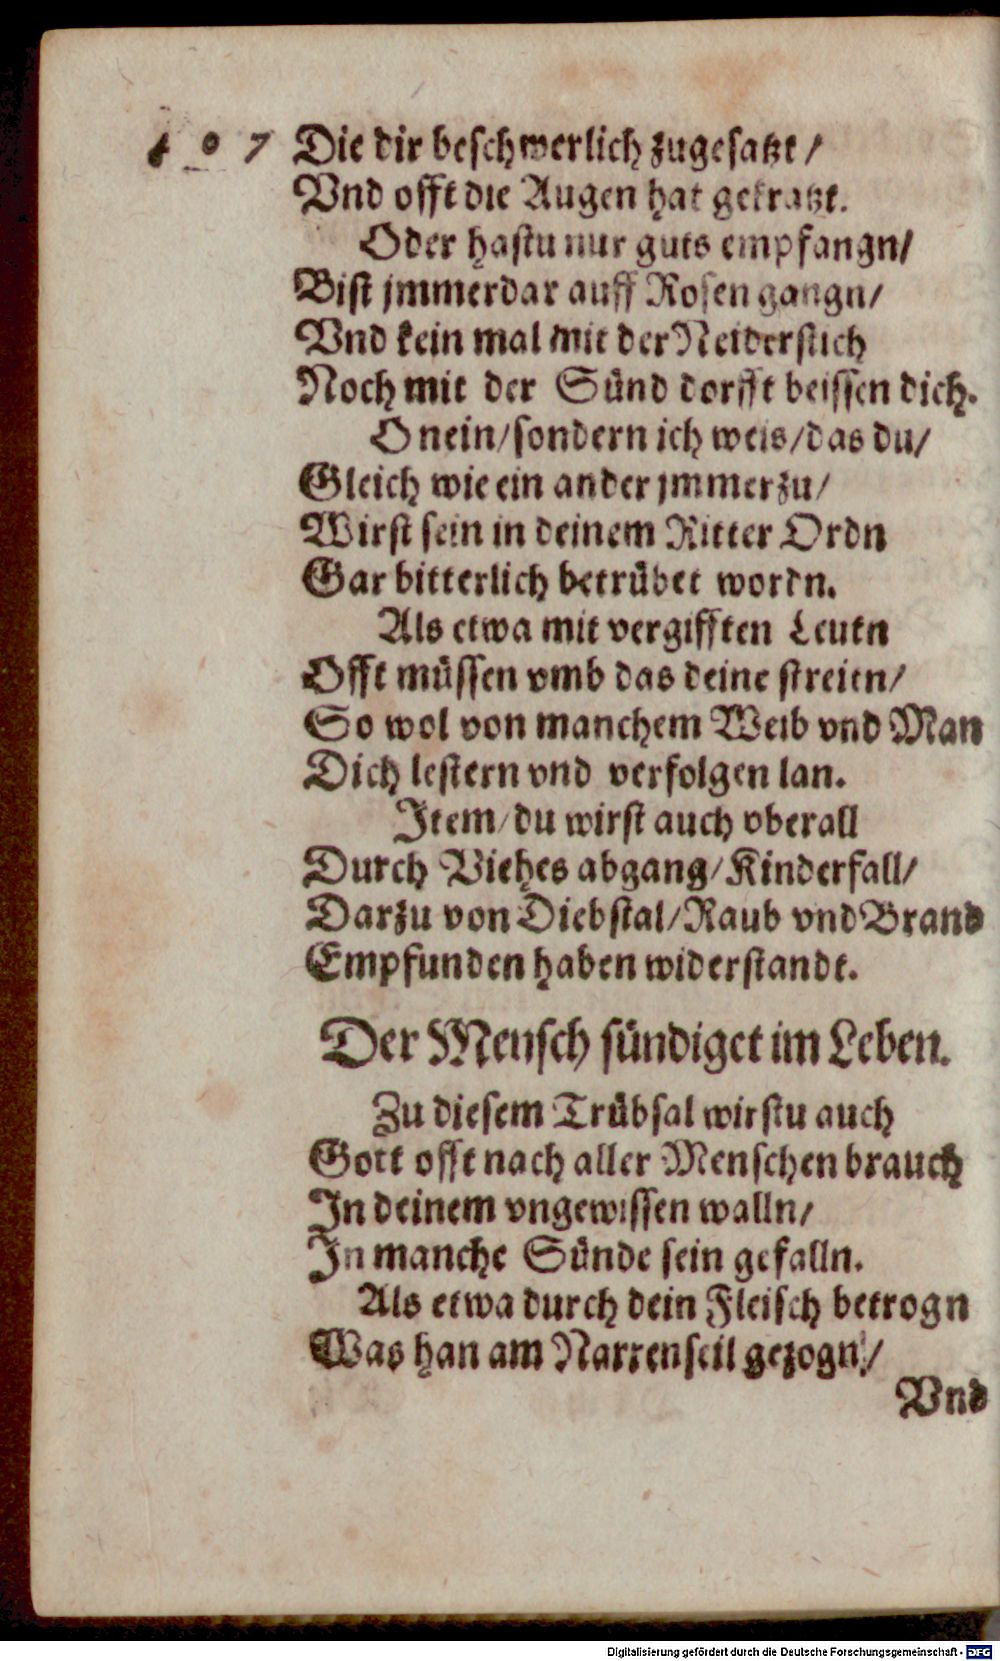 Die dir beschwerlich zugesatzt /
Vnd offt die Augen hat gekratzt.
Oder hastu nur guts empfangn /
Bist jmmerdar auff Rosen gangn /
Vnd kein mal mit der Neiderstich
Noch mit der Sünd dorfft beissen dich.
O nein / sondern ich weis / das du /
Gleich wie ein ander jmmerzu /
Wirst sein in deinem Ritter Ordn
Gar bitterlich betrübet wordn.
Als etwa mit vergifften Leutn
Offt müssen vmb das deine streitn /
So wol von manchem Weib vnd Man
Dich lestern vnd verfolgen lan.
Item / du wirst auch vberall
Durch Viehes abgang / Kinderfall /
Darzu von Diebstal / Raub vnd Brand
Empfunden haben widerstandt.
Der Mensch sündiget im Leben.
Zu diesem Trübsal wirstu auch
Gott offt nach aller Menschen brauch
In deinem vngewissen walln /
In manche Sünde sein gefalln.
Als etwa durch dein Fleisch betrogn
Was han am Narrenseil gezogn /
Vnd
Digitalisierung gefördert durch die Deutsche Forschungsgemeinschaft - DFG